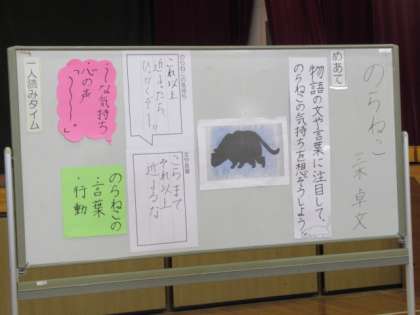 のらねこ
三木 卓 文
めあて
物語の文や言葉に注目して、
のらねこの気持ちを想ぞうしよう
のらねこの気持ち
これ以上
近づきたら
ひっかくぞー!!
文や言葉
こらまて
それ以上
近よるな
う な気持ち
心の声
のらねこの
・言葉
・行動
一人読みタイム